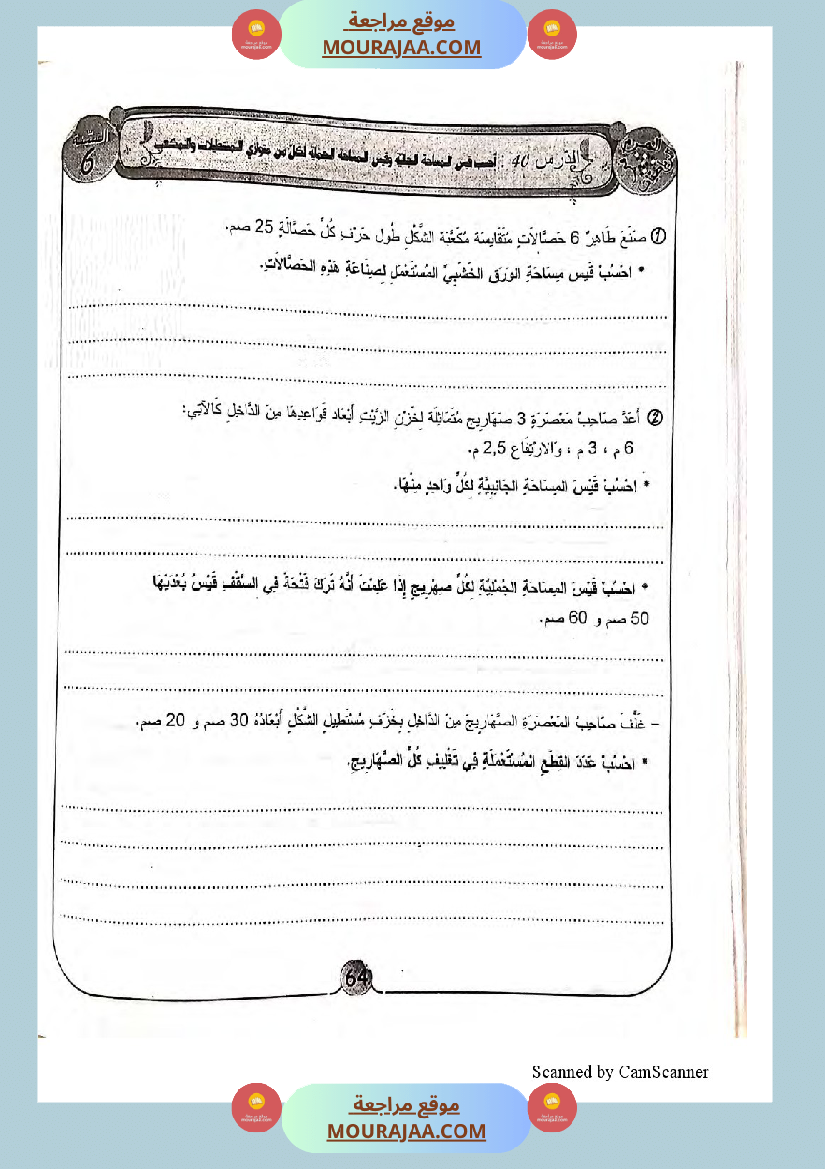 موقع مراجعة
MOURAJAA.COM
السنة 6
الدرس 40 : أحسب قيس المساحة الجانبية وقيس المساحة الجملية لكل من متوازي المستطيلات والمكعب
① صَنَعَ طَاهِرٌ 6 حَصَّالَاتٍ مُتَقَايِسَة مُكَعَّبَة الشَّكْلِ طُول حَرْفِ كُلِّ حَصَّالَةٍ 25 صم.
* احْسُبْ قَيْسَ مِسَاحَةِ الوَرَقِ الخَشَبِيِّ المُسْتَعْمَلِ لِصِنَاعَةِ هَذِهِ الحَصَّالَاتِ.
② أَعَدَّ صَاحِبُ مَعْصَرَةٍ 3 صَهَارِيج مُتَمَاثِلَة لِخَزْنِ الزَّيْتِ أَبْعَاد قَوَاعِدِهَا مِنَ الدَّاخِلِ كَالآتِي:
6 م ، 3 م ، وَالارْتِفَاع 2,5 م.
* احْسُبْ قَيْسَ المِسَاحَةِ الجَانِبِيَّةِ لِكُلِّ وَاحِدٍ مِنْهَا.
* احْسُبْ قَيْسَ المِسَاحَةِ الجُمْلِيَّةِ لِكُلِّ صِهْرِيجٍ إِذَا عَلِمْتَ أَنَّهُ تَرَكَ فَتْحَةً فِي السَّقْفِ قَيْسُ بُعْدَيْهَا
50 صم و 60 صم.
– غَلَّفَ صَاحِبُ المَعْصَرَةِ الصَّهَارِيجَ مِنَ الدَّاخِلِ بِخَزَفٍ مُسْتَطِيلِ الشَّكْلِ أَبْعَادُهُ 30 صم و 20 صم.
* احْسُبْ عَدَدَ القِطَعِ المُسْتَعْمَلَةِ فِي تَغْلِيفِ كُلِّ الصَّهَارِيجِ.
64
Scanned by CamScanner
موقع مراجعة
MOURAJAA.COM